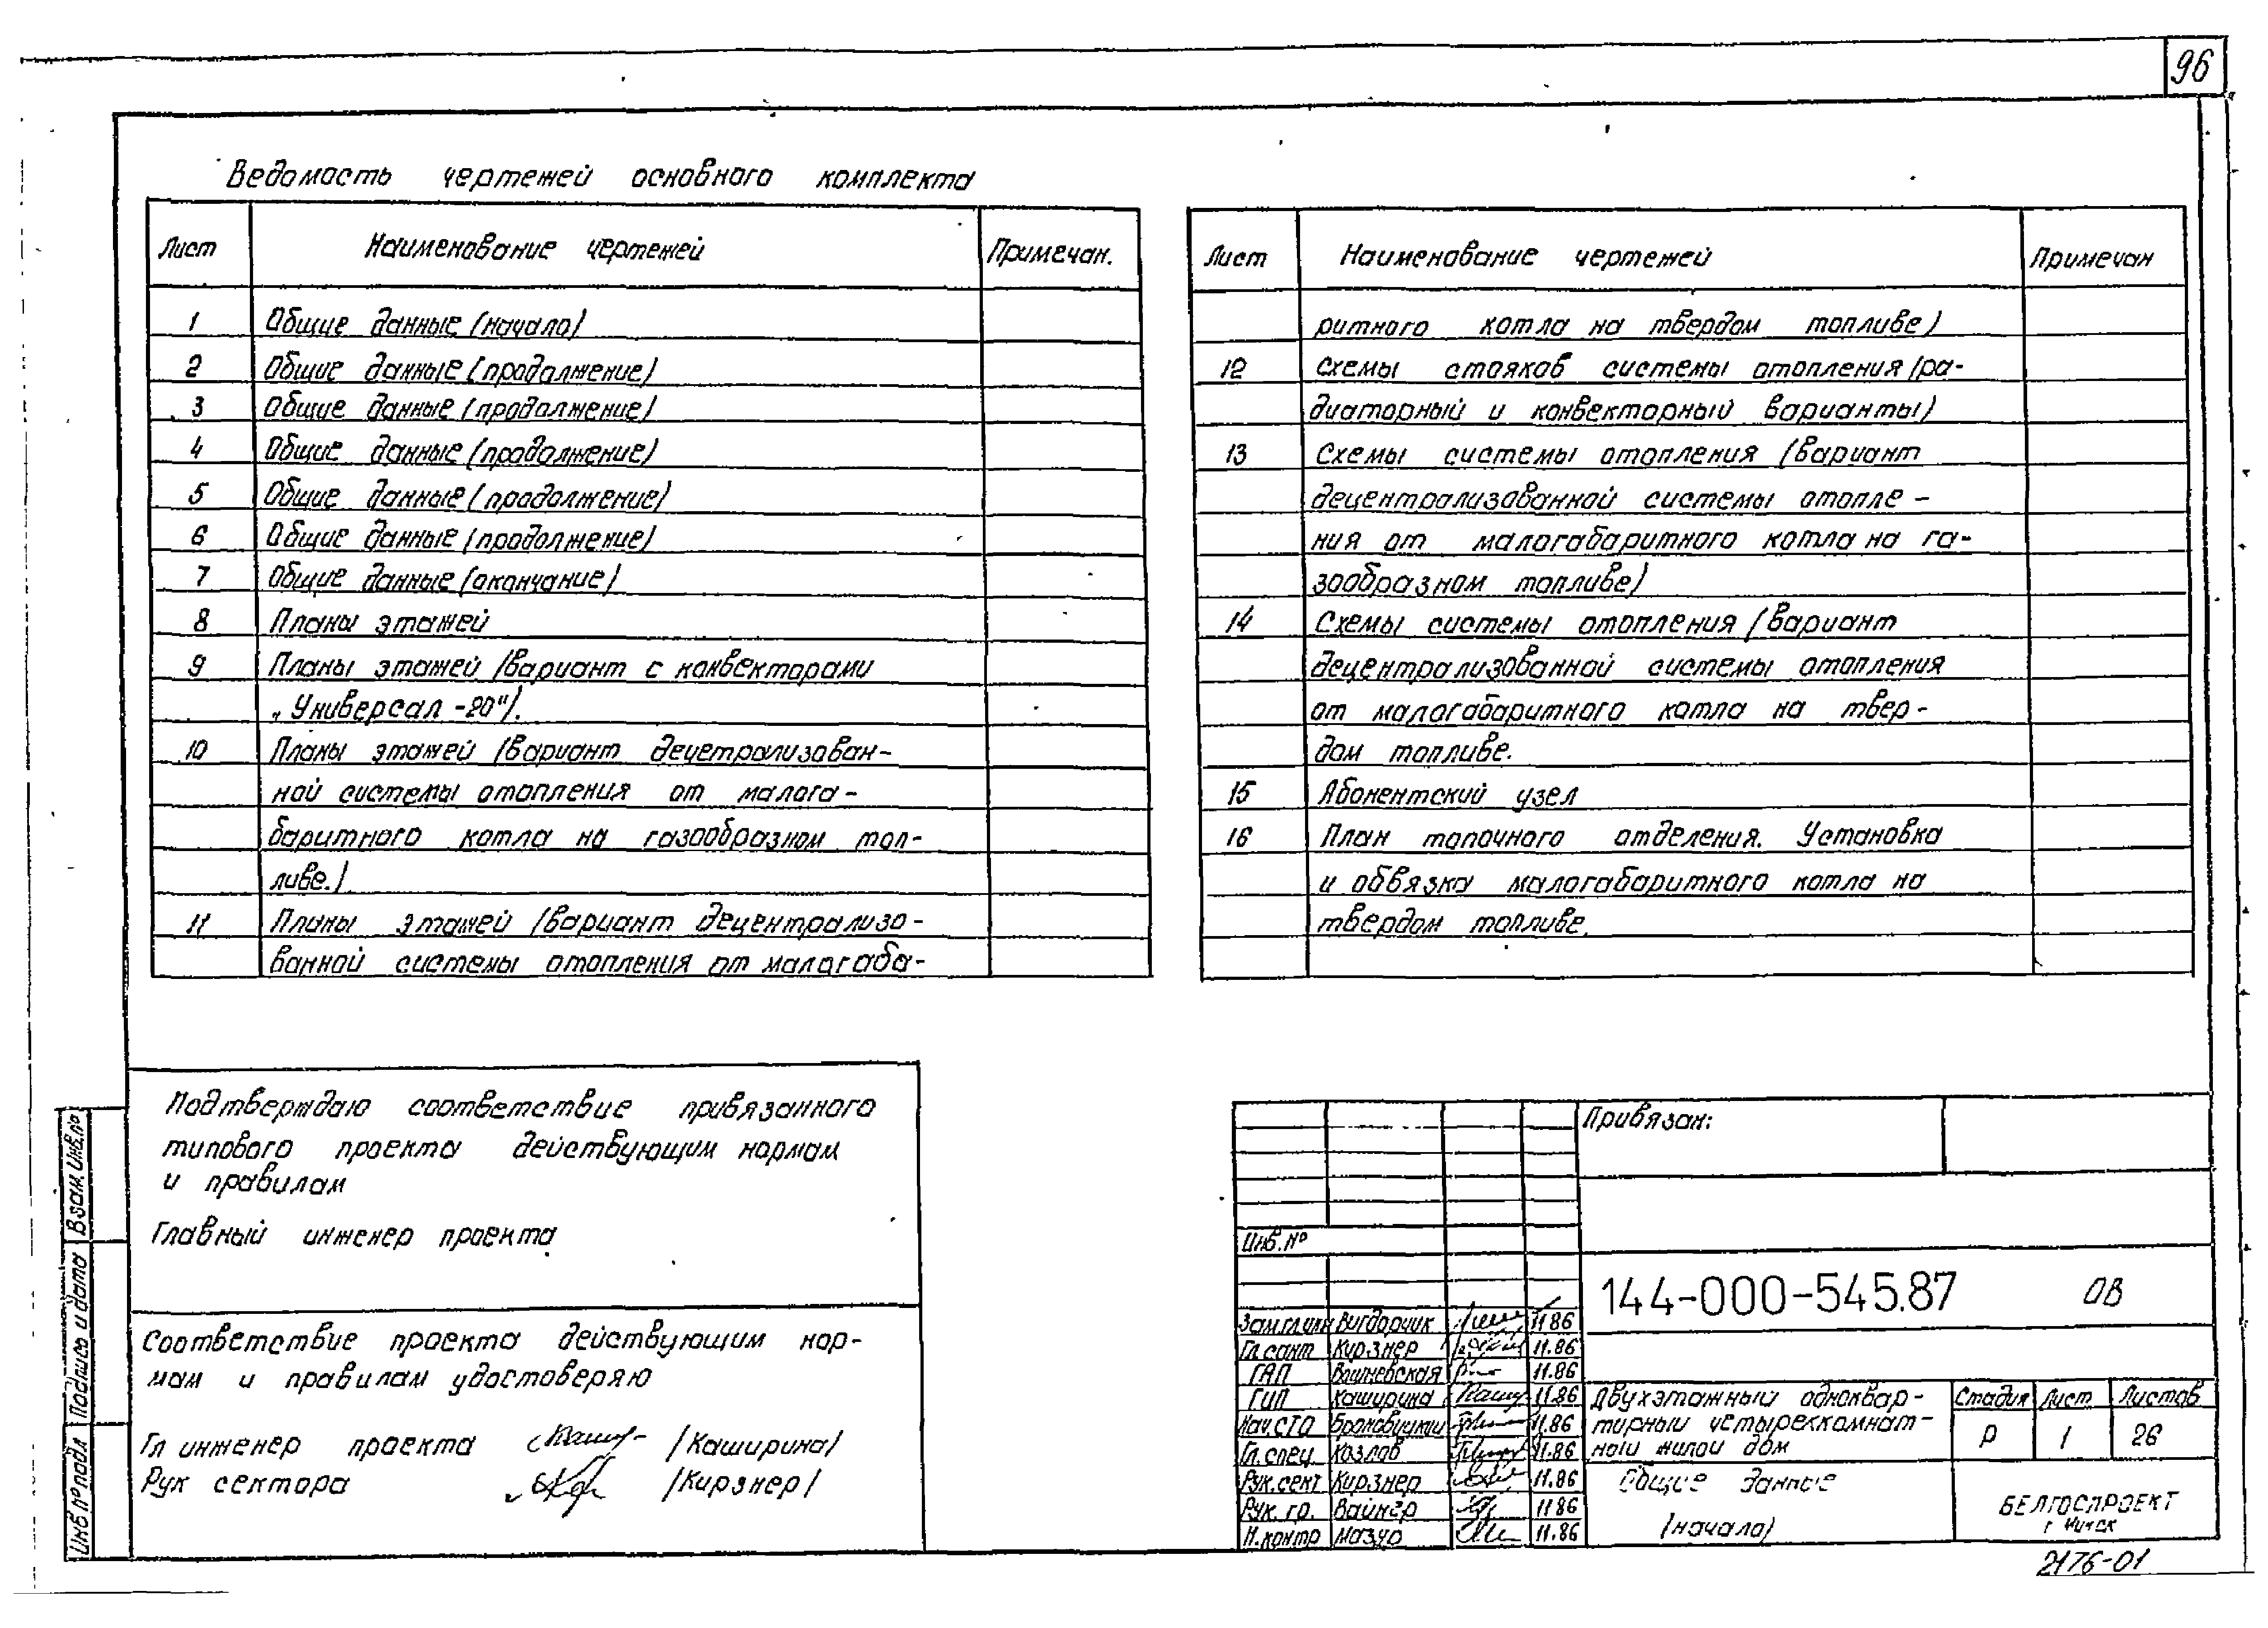 96
Ведомость чертежей основного комплекта
Лист Наименование чертежей Примечан.
1 Общие данные (начало)
2 Общие данные (продолжение)
3 Общие данные (продолжение)
4 Общие данные (продолжение)
5 Общие данные (продолжение)
6 Общие данные (продолжение)
7 Общие данные (окончание)
8 Планы этажей
9 Планы этажей (вариант с конвекторами
„Универсал-20").
10 Планы этажей (вариант децетрализован-
ной системы отопления от малога-
баритного котла на газообразном топ-
ливе.)
11 Планы этажей (вариант децентрализо-
ванной системы отопления от малогаба-
Лист Наименование чертежей Примечан
ритного котла на твердом топливе)
12 Схемы стояков системы отопления (ра-
диаторный и конвекторный варианты)
13 Схемы системы отопления (вариант
децентрализованной системы отопле-
ния от малогабаритного котла на га-
зообразном топливе)
14 Схемы системы отопления (вариант
децентрализованной системы отопления
от малогабаритного котла на твер-
дом топливе.
15 Абонентский узел
16 План топочного отделения. Установка
и обвязка малогабаритного котла на
твердом топливе.
Подтверждаю соответствие привязанного
типового проекта действующим нормам
и правилам
Главный инженер проекта
Соответствие проекта действующим нор-
мам и правилам удостоверяю
Гл инженер проекта /Каширина/
Рук сектора /Кирзнер/
Взам. инв. №
Подпись и дата
Инв № подл
Привязан:
Инв. №
144-000-545.87 ОВ
Зам.гл.инж Вигдорчик 11 86
Гл. сант Кирзнер 11.86
ГАП Вишневская 11.86
ГИП Каширина 11.86
Нач. СТО 11.86
Гл. спец Козлов 11.86
Рук. сект Кирзнер 11.86
Рук. гр. Вайнер 11 86
Н. контр Мазур 11.86
Двухэтажный одноквар-
тирный четырехкомнат-
ный жилой дом
Стадия Лист Листов
Р 1 26
Общие данные
(начало)
БЕЛГОСПРОЕКТ
г Минск
2176-01